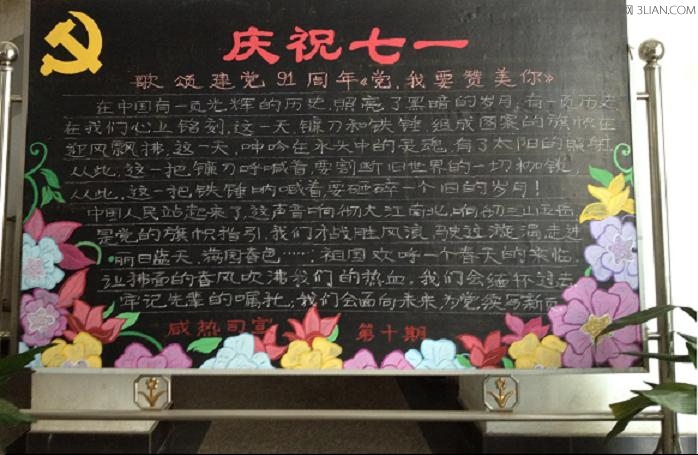 网 3LIAN.COM
庆祝七一
歌颂建党91周年《党,我要赞美你》
在中国有一页光辉的历史,照亮了黑暗的岁月,有一页历史
在我们心上铭刻,这一天,镰刀和铁锤,组成图案的旗帜在
迎风飘拂,这一天,呻吟在水头中的灵魂,有了太阳的照射
从此,这一把镰刀呼喊着,要割断旧世界的一切枷锁,
从此,这一把铁锤呐喊着,要砸碎一个旧的岁月!
中国人民站起来了,这声音响彻大江南北,响彻三山五岳
是党的旗帜指引,我们才战胜风浪,驶过漩涡走进
丽日蓝天、满园春色……祖国欢呼一个春天的来临
让拂面的春风吹沸我们的热血,我们会缅怀过去
牢记先辈的嘱托,我们会面向未来,为党续写新页
咸热司宣 第十期